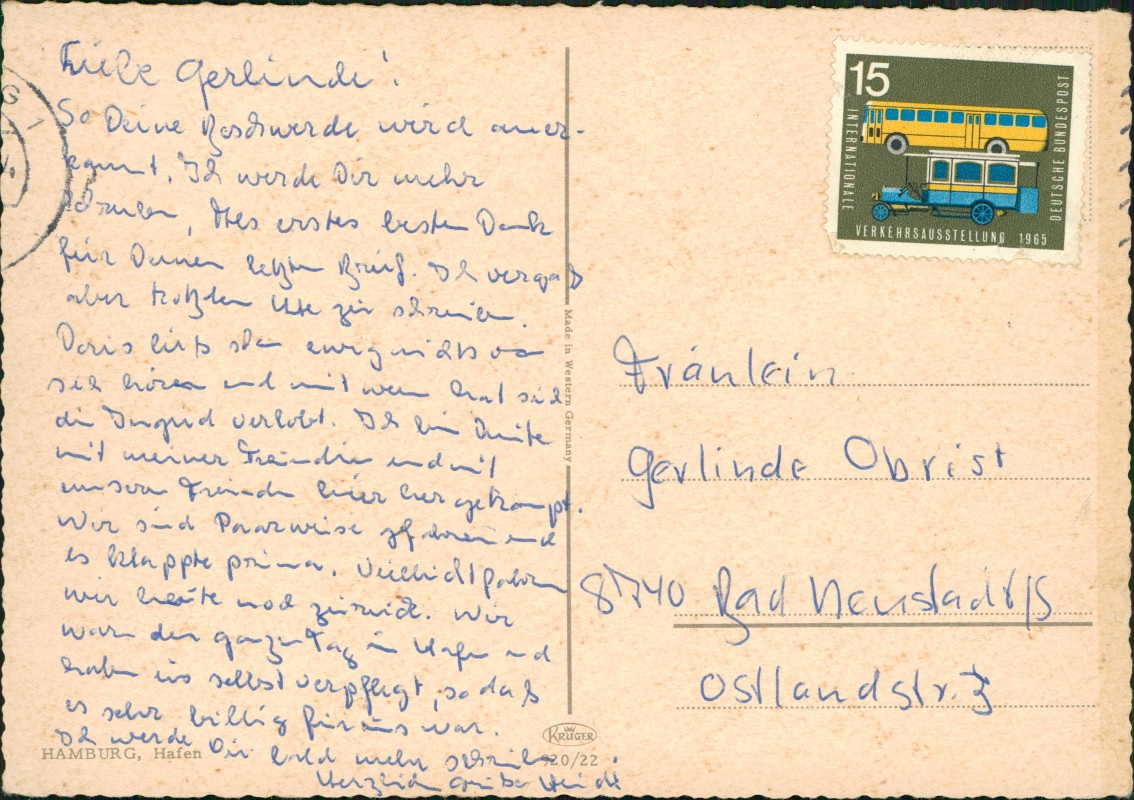 Liebe Gerlinde!
So Deine Beschwerde wird aner-
kannt. Ich werde Dir mehr
schreiben, Als erstes besten Dank
für Deinen letzten Brief. Ich vergaß
aber trotzdem Ute zu schreiben.
Doris läßt ewig nichts von
sich hören und mit wem hat sich
die Ingrid verlobt. Ich bin heute
mit meiner Freundin und mit
unseren Freunden hier her getrampt.
Wir sind Paarweise gefahren und
es klappte prima. Vielleicht fahren
wir heute noch zurück. Wir
waren den ganzen Tag im Hafen und
haben uns selbst verpflegt, so daß
es sehr billig für uns war.
Ich werde Dir bald mehr schreiben
Herzliche Grüße Heidi
HAMBURG, Hafen
Made in Western Germany
KRÜGER
920/22
15
INTERNATIONALE
VERKEHRSAUSSTELLUNG 1965
DEUTSCHE BUNDESPOST
Fräulein
Gerlinde Obrist
8740 Bad Neustadt/S
Ostlandstr. 3